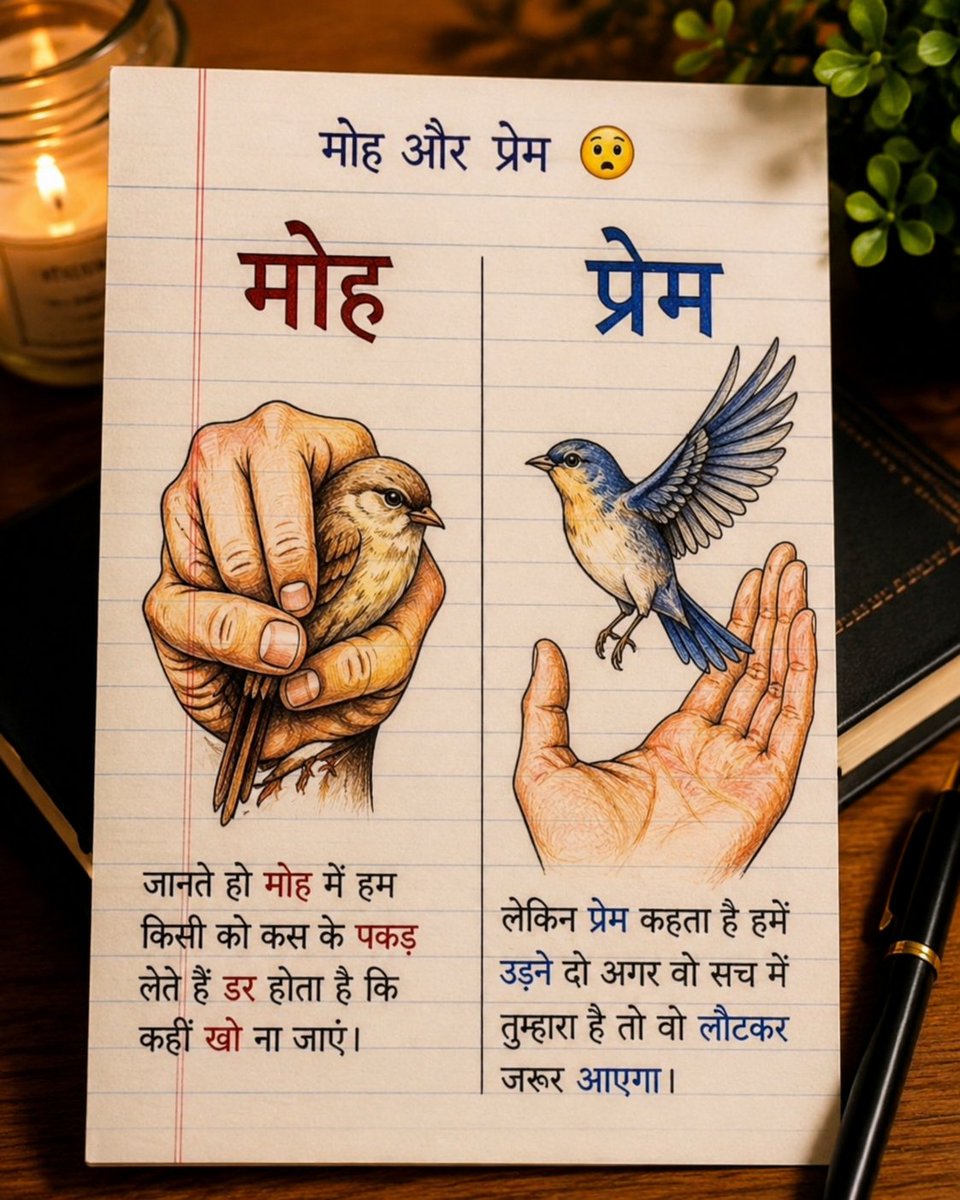 मोह और प्रेम 😯
मोह
जानते हो मोह में हम
किसी को कस के पकड़
लेते हैं डर होता है कि
कहीं खो ना जाएं।
प्रेम
लेकिन प्रेम कहता है हमें
उड़ने दो अगर वो सच में
तुम्हारा है तो वो लौटकर
जरूर आएगा।